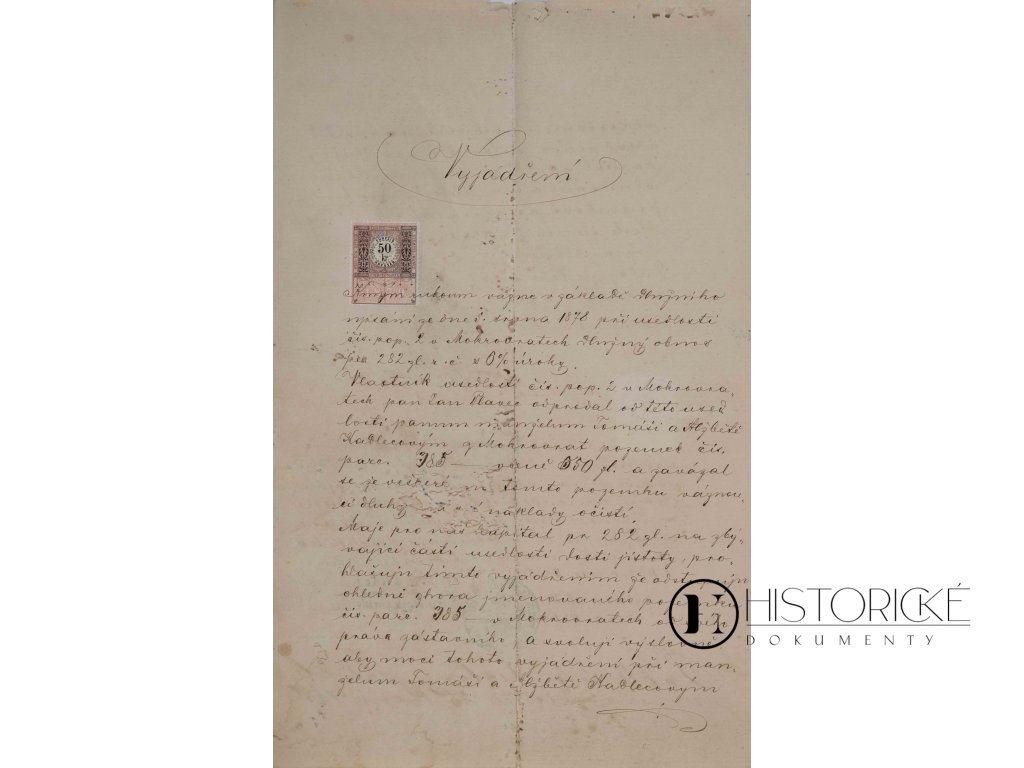 Vyjádření
50
kr
vázne v základě dlužního
upsání ze dne 1. srpna 1878 při usedlosti
čís. pop. 2 v Mokrovratech dlužný obnos
per 282 zl. r. č. s 6% úroky.
Vlastník usedlosti čís. pop. 2 v Mokrovra-
tech pan Jan Vlavec odprodal od této used
losti panum manželum Tomáši a Alžbětě
Kadlecovým z Mokrovrat pozemek čís.
parc. 385 — v ceně 550 zl. a zavázal
se je veškeré na tomto pozemku váznou-
cí dluhy na své náklady očistí
Maje pro náš kapitál pr. 282 zl. na zbý-
vající části usedlosti dosti jistoty, pro-
hlašuju tímto vyjádřením že odstupuju
ohledně zhora jmenovaného pozemku
čís. parc. 385 — v Mokrovratech od
práva zástavního a svoluji výslovně
aby mocí tohoto vyjádření při man-
želum Tomáši a Alžbětě Kadlecovým
HISTORICKÉ
DOKUMENTY